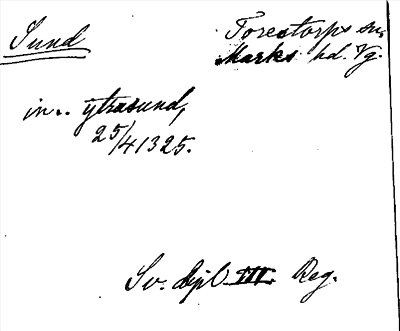 Sund
Torestorps sn,
Marks hd. Vg.
in.. ytrasund,
25/4 1325.
Sv. dipl. III. Reg.